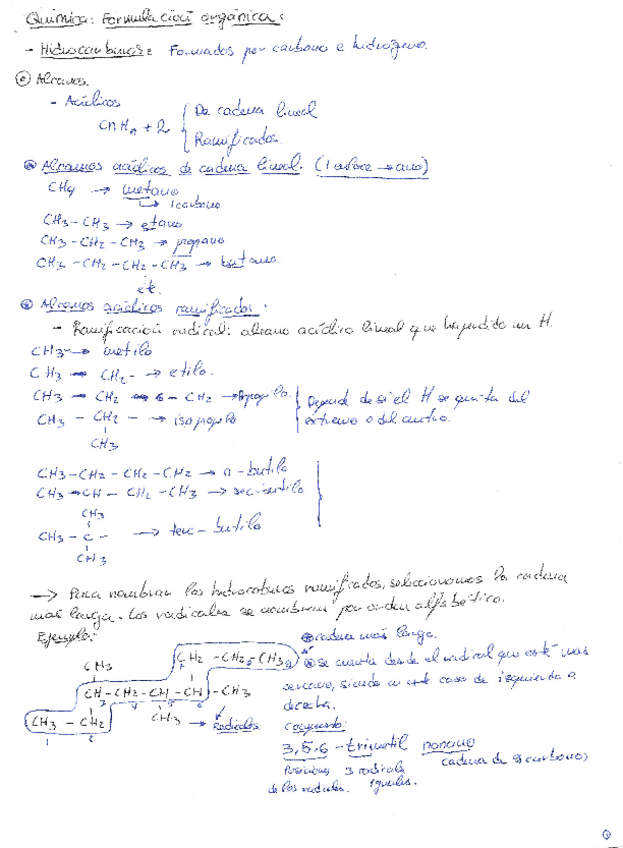 Química: Formulación orgánica:
- Hidrocarburos: Formados por carbono e hidrógeno.
Alcanos.
- Acíclicos
CnHn+2 { De cadena lineal
Ramificados.
Alcanos acíclicos de cadena lineal. (1 enlace → ano)
CH4 → metano
↳ 1 carbono
CH3-CH3 → etano
CH3-CH2-CH3 → propano
CH3-CH2-CH2-CH3 → butano.
etc.
Alcanos acíclicos ramificados:
- Ramificación radical: alcano acíclico lineal que ha perdido un H.
CH3- → metilo
CH3 - CH2- → etilo.
CH3 - CH2 - CH2 → Propilo
CH3 - CH2 - → isopropilo
CH3
Depende de si el H se quita del
extremo o del centro.
CH3-CH2-CH2-CH2 → n-butilo
CH3-CH-CH2-CH3 → sec-butilo
CH3
CH3-C- → terc-butilo
CH3
→ Para nombrar los hidrocarburos ramificados, seleccionamos la cadena
más larga. Los radicales se nombran por orden alfabético.
Ejemplo:
cadena más larga.
CH2-CH2-CH3
CH3
se cuenta desde el radical que esté más
cercano, siendo en este caso de izquierda a
derecha.
CH-CH2-CH-CH-CH3
CH3-CH2
CH3 → Radicales
Compuesto:
3,5,6-trimetil nonano
Posiciones 3 radicales cadena de 9 carbonos
de los radicales. iguales.